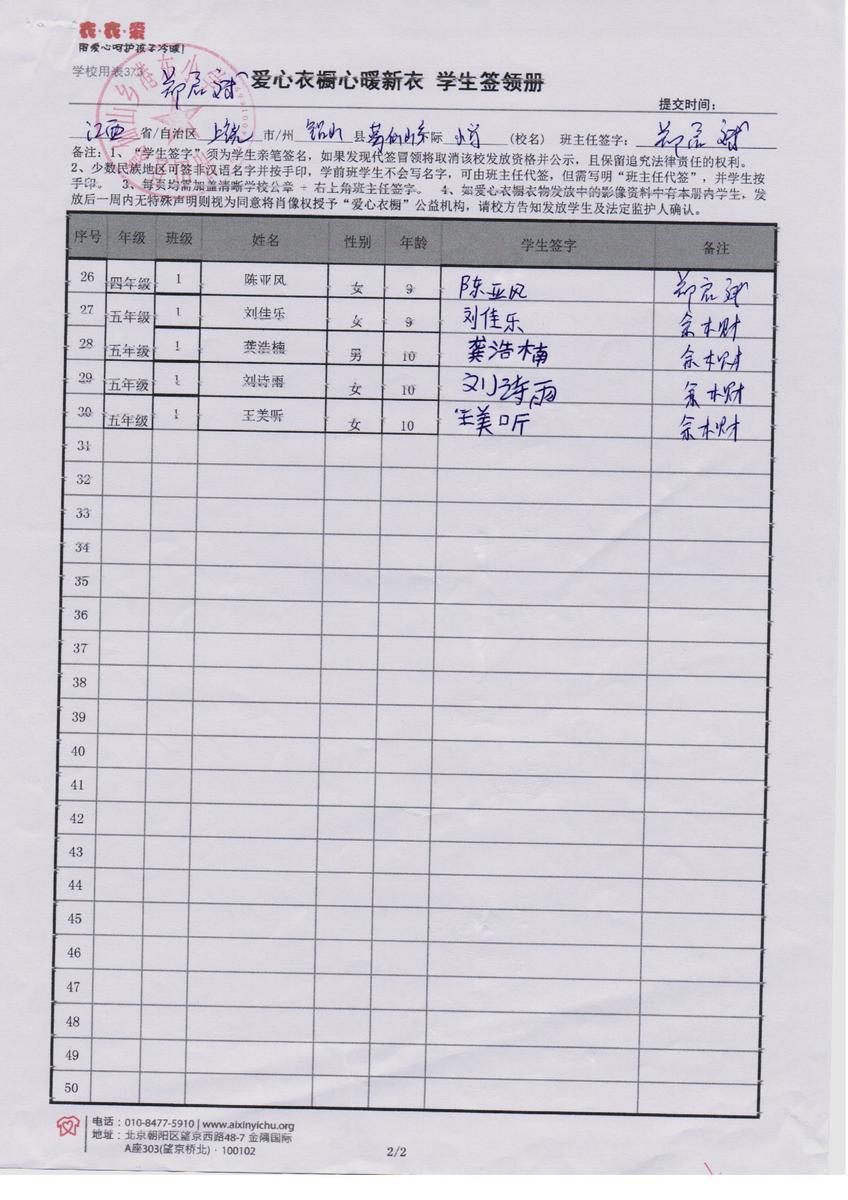 衣·衣·爱
用爱心呵护孩子冷暖!
学校用表3/3
爱心衣橱心暖新衣 学生签领册
提交时间：
江西 省/自治区 上饶 市/州 铅山 县 (校名) 班主任签字：
备注：1、“学生签字”须为学生亲笔签名，如果发现代签冒领将取消该校发放资格并公示，且保留追究法律责任的权利。
2、少数民族地区可签非汉语名字并按手印，学前班学生不会写名字，可由班主任代签，但需写明“班主任代签”，并学生按
手印。 3、每页均需加盖清晰学校公章 + 右上角班主任签字。 4、如爱心衣橱衣物发放中的影像资料中有本册内学生，发
放后一周内无特殊声明则视为同意将肖像权授予“爱心衣橱”公益机构，请校方告知发放学生及法定监护人确认。
序号 年级 班级 姓名 性别 年龄 学生签字 备注
26 四年级 1 陈亚风 女 9 陈亚风
27 五年级 1 刘佳乐 女 9 刘佳乐 余木财
28 五年级 1 龚浩楠 男 10 龚浩楠 余木财
29 五年级 1 刘诗雨 女 10 刘诗雨 余木财
30 五年级 1 王美听 女 10 王美听 余木财
31
32
33
34
35
36
37
38
39
40
41
42
43
44
45
46
47
48
49
50
电话：010-8477-5910 | www.aixinyichu.org
地址：北京朝阳区望京西路48-7 金隅国际
A座303(望京桥北)·100102
2/2